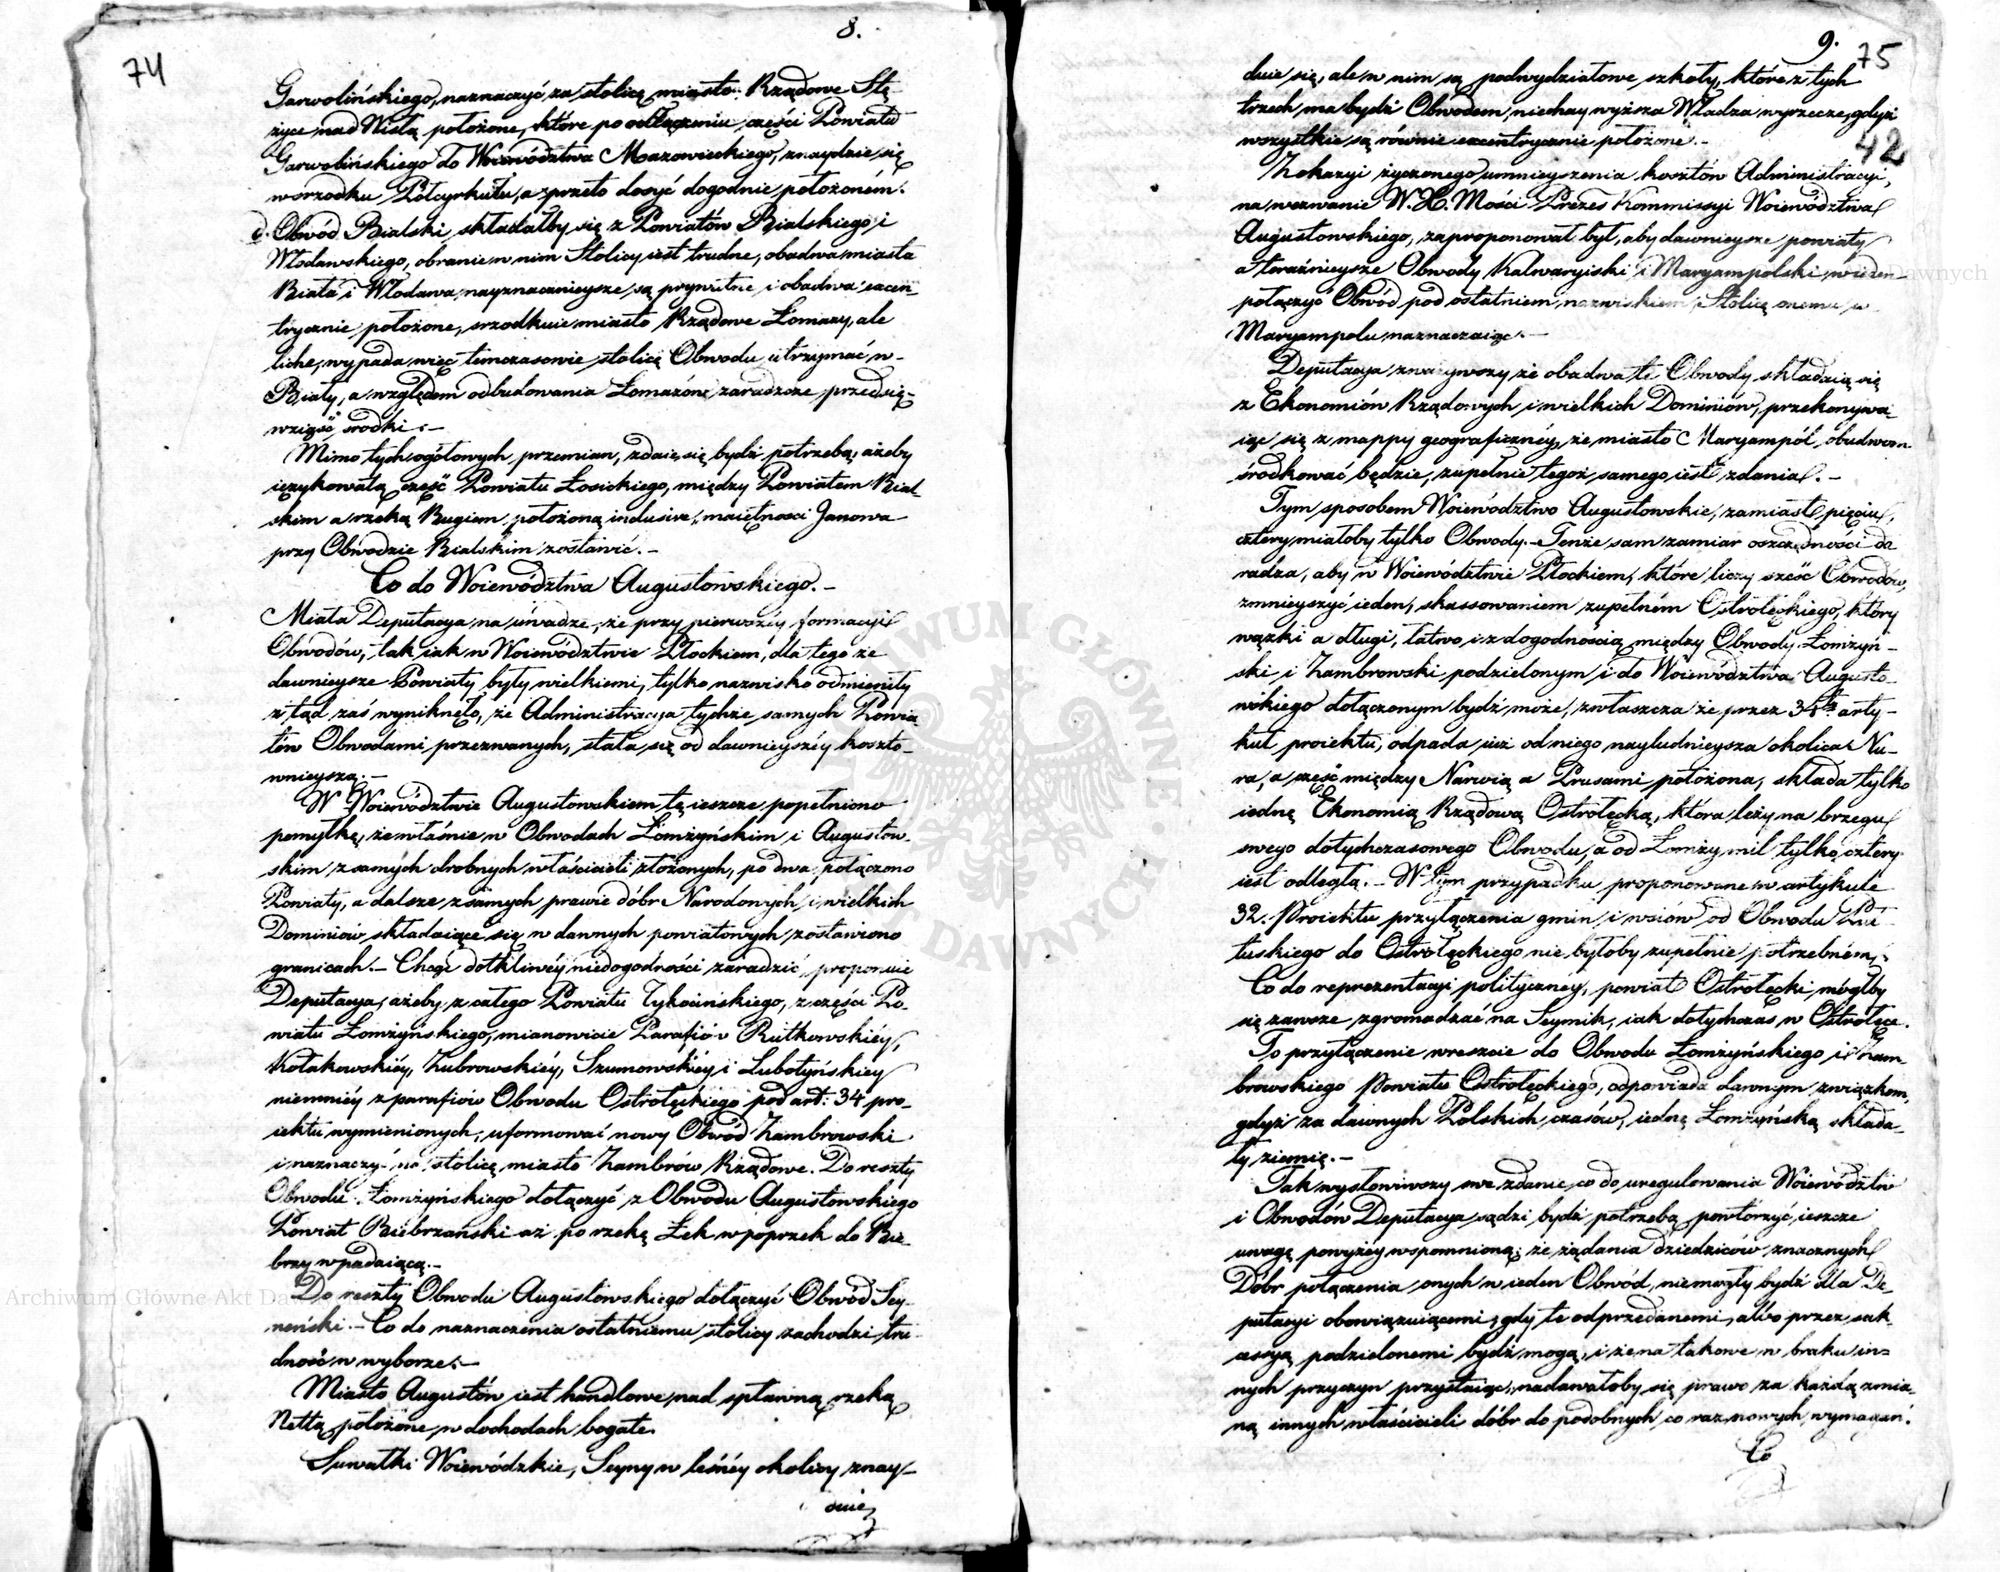 8.
74
Garwolińskiego, naznaczyć za stolicę miasto Rządowe Stę-
życe nad Wisłą położone, które po odłączeniu części Powiatu
Garwolińskiego do Woiewództwa Mazowieckiego, znaydzie się
w srzodku Półcyrkułu, a przeto dosyć dogodnie położoném.
d. Obwód Bialski składałby się z Powiatów Bialskiego i
Włodawskiego, obranie w nim Stolicy iest trudne, obadwa miasta
Biała i Włodawa nayznacznieysze są prywatne i obadwa excen-
trycznie położone, srzodkuie miasto Rządowe Łomazy, ale
liche, wypada więc tymczasowie stolicę Obwodu utrzymać w
Biały, a względem odbudowania Łomazów zaradcze przedsię-
wziąść środki.-
Mimo tych ogółowych przemian, zdaie się bydź potrzebą, ażeby
ięzykowatą część Powiatu Łosickiego, między Powiatem Bial-
skim a rzeką Bugiem położoną inclusive maiętnosci Janowa
przy Obwodzie Bialskim zostawić.-
Co do Woiewództwa Augustowskiego.-
Miała Deputacya na uwadze, że przy pierwszéy formacyi
Obwodów, tak iak w Woiewództwie Płockiem, dla tego że
dawnieysze Powiaty były wielkiemi, tylko nazwisko odmieniły
z tąd zaś wyniknęło, że Administracya tychże samych Powia
tów Obwodami przezwanych, stała się od dawnieyszéy koszto-
wnieyszą.-
W Woiewództwie Augustowskiem tę ieszcze popełniono
pomyłkę, że właśnie w Obwodach Łomżyńskim i Augustow-
skim z samych drobnych właścicieli złożonych, po dwa połączono
Powiaty, a dalsze z samych prawie dóbr Narodowych i wielkich
Dominiów składaiące się w dawnych powiatowych zostawiono
granicach.- Chcąc dotkliwéy niedogodności zaradzić, proponuie
Deputacya, ażeby z całego Powiatu Tykocińskiego, z części Po-
wiatu Łomżyńskiego, mianowicie Parafiów Rutkowskiéy,
Kołakowskiéy, Zubrowskiéy, Szumowskiéy i Lubotyńskiey
niemniéy z parafiów Obwodu Ostrołęckiego pod art: 34 pro-
iektu wymienionych, uformować nowy Obwód Zambrowski
i naznaczyć na stolicę miasto Zambrów Rządowe. Do reszty
Obwodu Łomżyńskiego dołączyć z Obwodu Augustowskiego
Powiat Biebrzański aż po rzekę Łek w poprzek do Bie-
brzy wpadaiącą.-
Do reszty Obwodu Augustowskiego dołączyć Obwód Sey-
neński.- Co do naznaczenia ostatniemu stolicy zachodzi tru-
dność w wyborze.-
Miasto Augustów iest handlowe, nad spławną rzeką
Nettą położone, w dochodach bogate.
Suwałki Woiewódzkie, Seyny w leśnéy okolicy znay-
duie
9. 75
42
duie się, ale w nim są podwydziałowe szkoły, które z tych
trzech ma bydź Obwodem, niechay wyższa Władza wyrzecze, gdyż
wszystkie są równie excentrycznie położone.-
Z okazyi życzonego umnieyszenia kosztów Administracyi,
na wezwanie W. X. Mości Prezes Kommissyi Woiewództwa
Augustowskiego, zaproponował był, aby dawnieysze powiaty
a teraźnieysze Obwody Kalwaryiski i Maryampolski, w ieden
połączyć Obwód pod ostatniem nazwiskiem, Stolicę onemu w
Maryampolu naznaczaiąc.-
Deputacya zważywszy że obadwa te Obwody składaią się
z Ekonomiów Rządowych i wielkich Dominiów, przekonywa
iąc się z mappy geograficznéy, że miasto Maryampól obudwom
środkować będzie, zupełnie tegoż samego iest zdania.-
Tym sposobem Woiewództwo Augustowskie, zamiast pięciu,
cztery miałoby tylko Obwody.- Tenże sam zamiar oszczędności do
radza, aby w Woiewództwie Płockiem, które liczy sześć Obwodów,
zmnieyszyć ieden, skassowaniem zupełném Ostrołęckiego, który
wązki a długi, łatwo i z dogodnością między Obwody Łomżyń-
ski i Zambrowski podzielonym i do Woiewództwa Augusto-
wskiego dołączonym bydź może, zwłaszcza że przez 34ty arty-
kuł proiektu, odpada iuż od niego nayludnieysza okolica Nu-
ra, a część między Narwią a Prusami położona, składa tylko
iednę Ekonomią Rządową Ostrołęcką, która leży na brzegu
swego dotychczasowego Obwodu, a od Łomży mil tylko cztery
iest odległa.- W tym przypadku proponowane w artykule
32. Proiektu przyłączenia gmin i wsiów od Obwodu Puł-
tuskiego do Ostrołęckiego nie byłoby zupełnie potrzebném.
Co do reprezentacyi polityczney, powiat Ostrołęcki mógłby
się zawsze zgromadzać na Seymik, iak dotychczas w Ostrołęce.
To przyłączenie wreszcie do Obwodu Łomżyńskiego i Zam
browskiego Powiatu Ostrołęckiego, odpowiada dawnym związkom,
gdyż za dawnych Polskich czasów, iednę Łomżyńską składa-
ły ziemię.-
Tak wysłowiwszy swe zdanie, co do uregulowania Woiewództw
i Obwodów Deputacya sądzi bydź potrzebą powtorzyć ieszcze
uwagę powyżey wspomnioną, że żądania dziedziców znacznych
Dóbr połączenia onych w ieden Obwód, niemogły bydź dla De-
putacyi obowiązuiącemi, gdy te odprzedanemi, albo przez suk-
cessyą podzielonemi bydź mogą, i że na takowe w braku in-
nych przyczyn przystaiąc, nadawałoby się prawo za każdą zmia-
ną innych właścicieli dóbr do podobnych co raz nowych wymagań.
Co
ARCHIWUM GŁÓWNE AKT DAWNYCH
Archiwum Główne Akt Dawnych